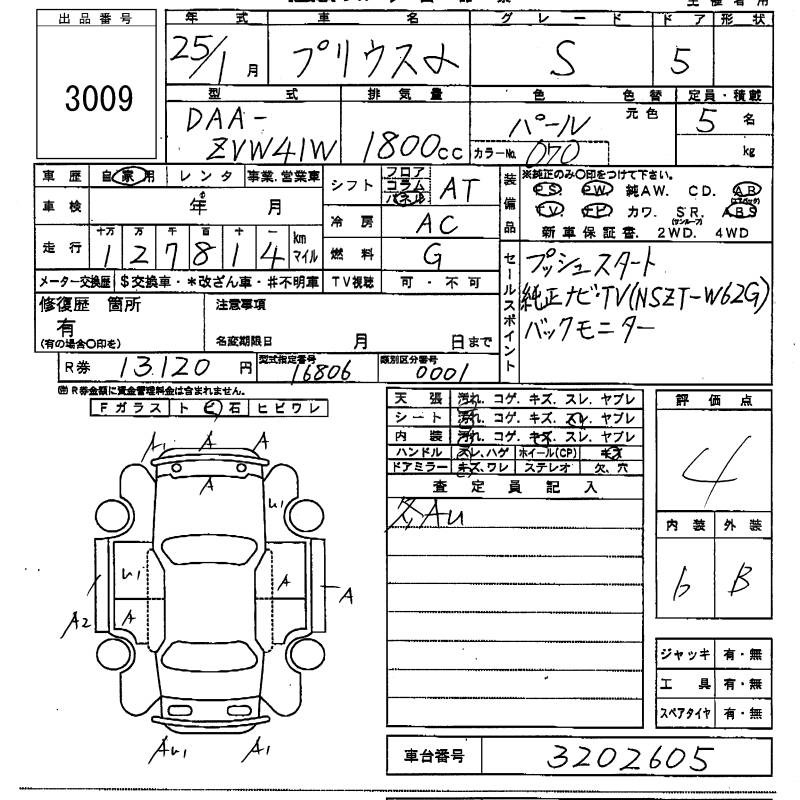 主催者用
出品番号
3009
年式 車名 グレード ドア 形状
25/1月 プリウスα S 5
型式 排気量 色 色替 定員・積載
DAA-
ZVW41W 1800cc パール 元色 5名
カラーNo. 070 kg
車歴 自家用 レンタ 事業.営業車
シフト フロア コラム パネル AT
車検 年 月
冷房 AC
走行 十万 万 千 百 十 一 km マイル
1 2 7 8 1 4
燃料 G
メーター交換歴 $交換車・*改ざん車・#不明車 TV視聴 可・不可
装備品
※純正のみ○印をつけて下さい。
PS. PW. 純AW. CD. AB
TV. カワ. SR. (サンルーフ) ABS
新車保証書. 2WD. 4WD
セールスポイント
プッシュスタート
純正ナビ・TV(NSZT-W62G)
バックモニター
修復歴 箇所
有
(有の場合○印を)
注意事項
名変期限日 月 日まで
R券 13.120円 型式指定番号 16806 類別区分番号 0001
㊟R券金額に資金管理料金は含まれません。
Fガラス トビ石 ヒビワレ
天張 汚れ. コゲ. キズ. スレ. ヤブレ
シート 汚れ. コゲ. キズ. スレ. ヤブレ
内装 汚れ. コゲ. キズ. スレ. ヤブレ
ハンドル スレ.ハゲ ホイール(CP) キズ
ドアミラー キズ.ワレ ステレオ 欠.穴
査定員記入
各AU
評価点
4
内装 外装
b B
A1 A A
A
U1
U1 A
A
A2 A
AU1 A1
ジャッキ 有・無
工具 有・無
スペアタイヤ 有・無
車台番号 3202605